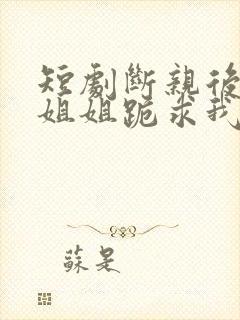 短劇斷親後
姐姐跪求我
蘇是